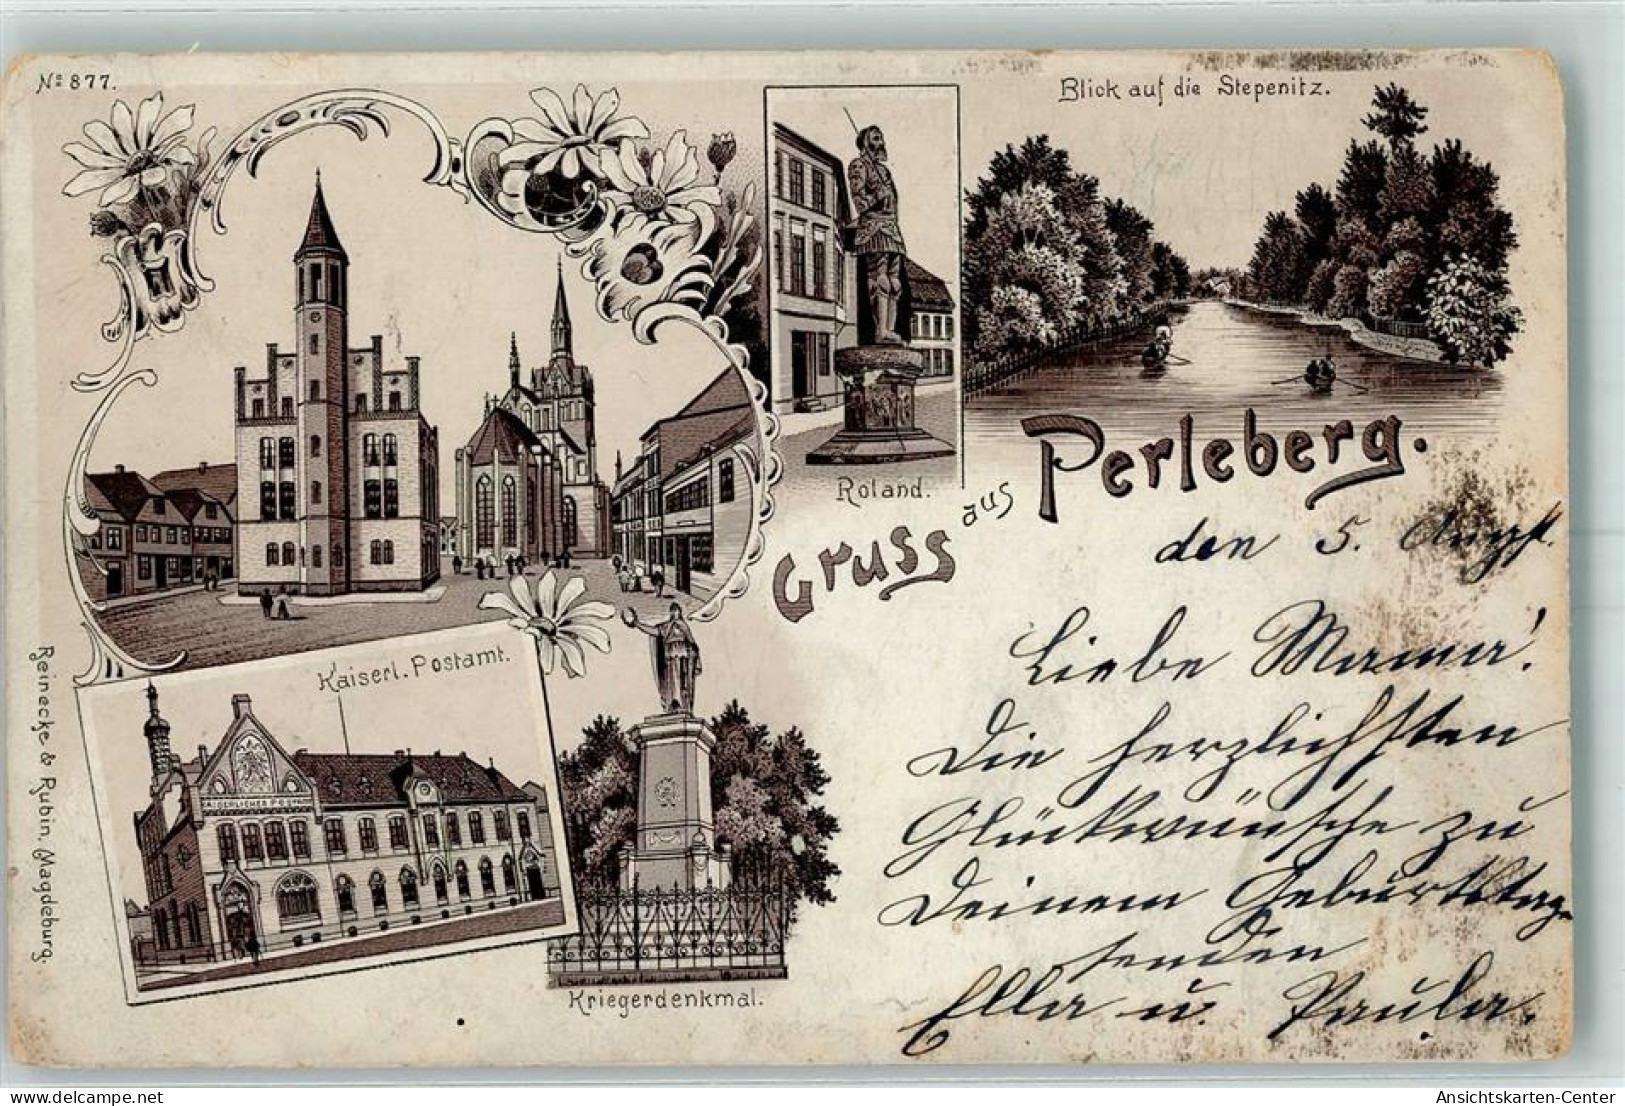 No 877.
Blick auf die Stepenitz.
Roland.
Gruss aus Perleberg.
den 5. Augst.
Liebe Mama!
Die herzlichsten
Glückwünsche zu
Deinem Geburtstag
senden
Ella u. Paula.
Kaiserl. Postamt.
KAISERLICHES POSTAMT
Kriegerdenkmal.
Reinecke & Rubin, Magdeburg.
delcampe.net
Ansichtskarten-Center